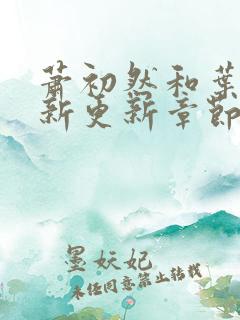 萧初然和葉
新更新章節
墨妖妃
未经同意禁止转载